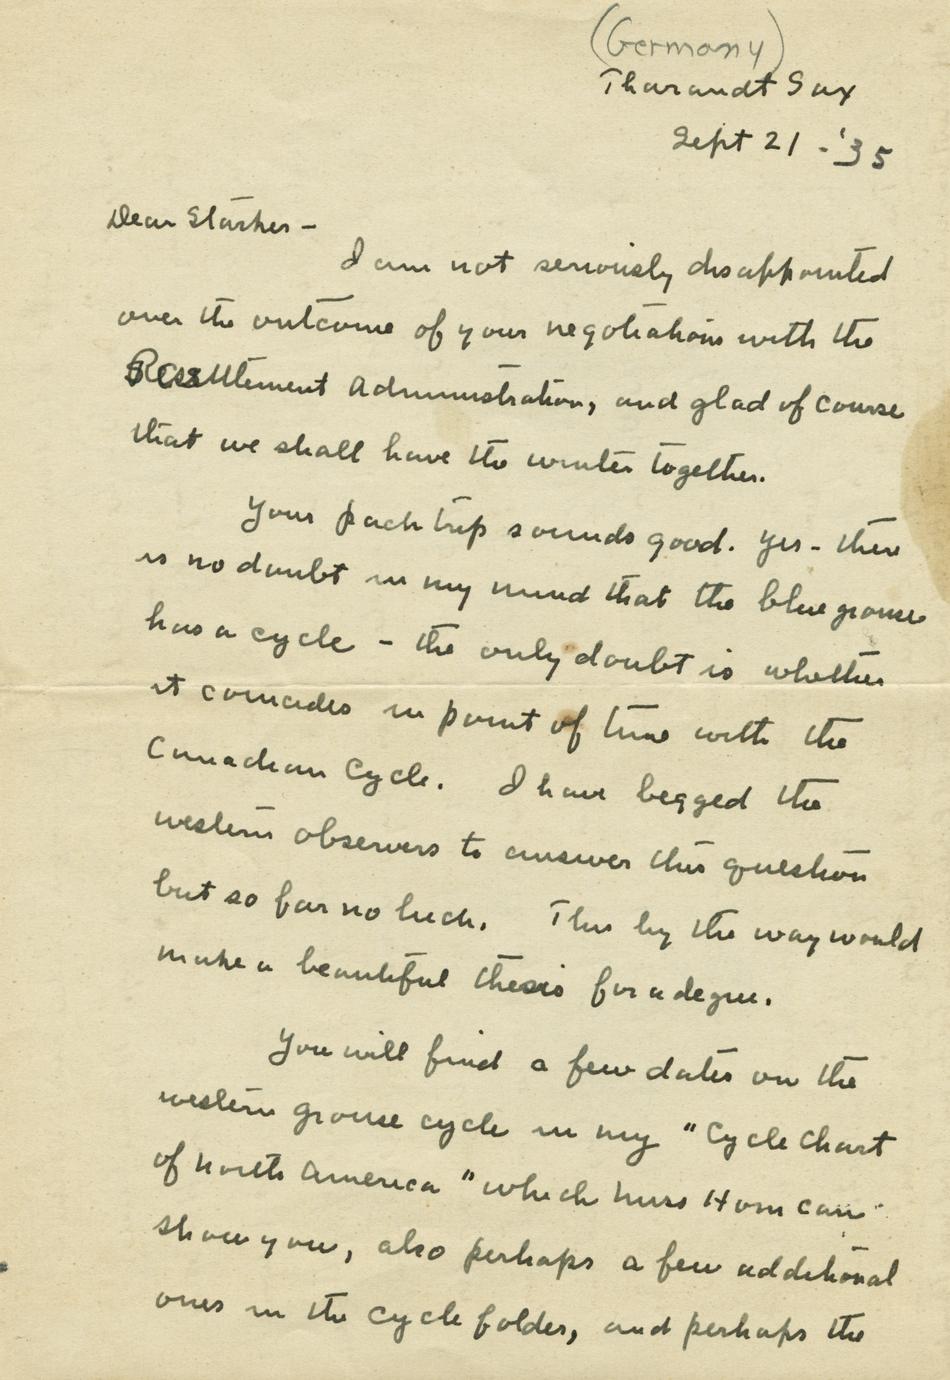 (Germany)
Tharandt Sax
Sept 21 - '35
Dear Starker -
I am not seriously disappointed
over the outcome of your negotiations with the
Resettlement Administration, and glad of course
that we shall have the winter together.
Your pack trip sounds good. Yes - there
is no doubt in my mind that the blue grouse
has a cycle - the only doubt is whether
it coincides in point of time with the
Canadian Cycle. I have begged the
western observers to answer this question
but so far no luck. This by the way would
make a beautiful thesis for a degree.
You will find a few dates on the
western grouse cycle in my "Cycle Chart
of North America" which Miss Horn can
show you, also perhaps a few additional
ones in the cycle folder, and perhaps the